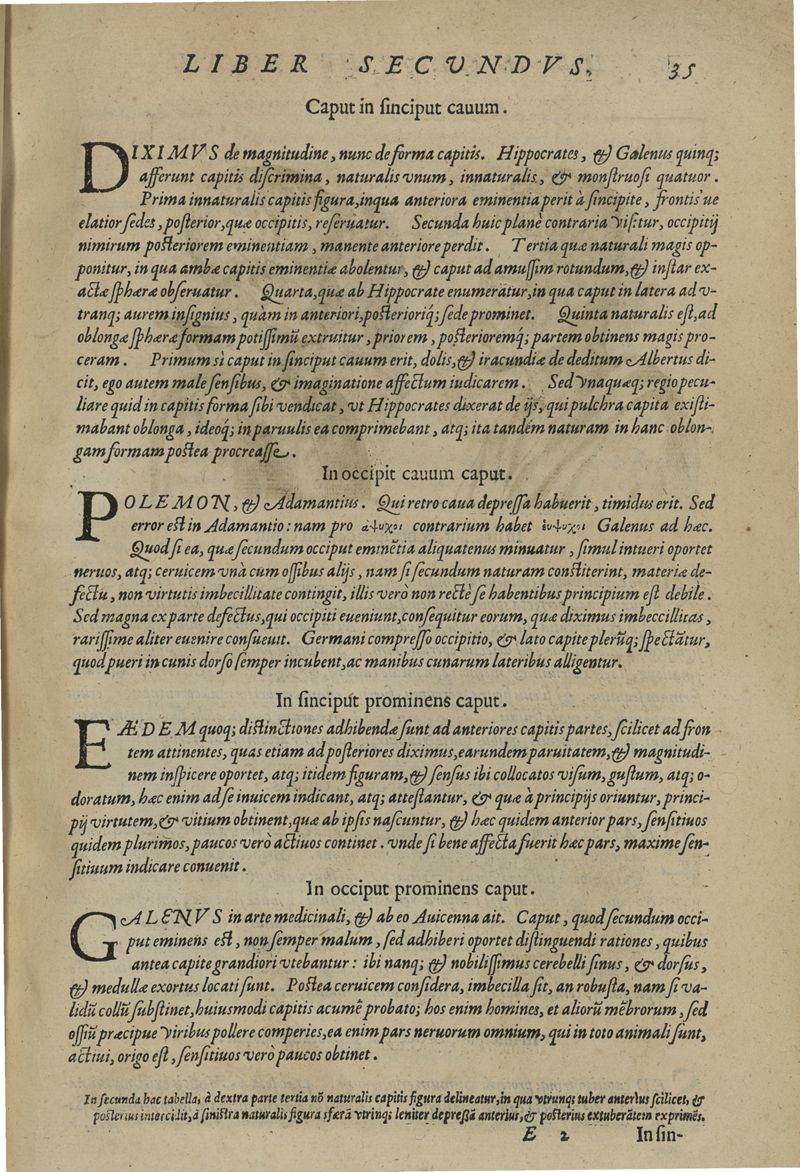 LIBER SECVNDVS. 35
Caput in sinciput cauum.
DIXIMVS de magnitudine, nunc de forma capitis. Hippocrates, & Galenus quinq;
afferunt capitis discrimina, naturalis vnum, innaturalis, & monstruosi quatuor.
Prima innaturalis capitis figura, inqua anteriora eminentia perit à sincipite, frontis'ue
elatior sedes, posterior, quæ occipitis, reseruatur. Secunda huic planè contraria visitur, occipitij
nimirum posteriorem eminentiam, manente anteriore perdit. Tertia quæ naturali magis op-
ponitur, in qua ambæ capitis eminentiæ abolentur, & caput ad amussim rotundum, & instar ex-
actæ sphæræ obseruatur. Quarta, quæ ab Hippocrate enumeratur, in qua caput in latera ad v-
tranq; aurem insignius, quàm in anteriori, posterioriq; sede prominet. Quinta naturalis est, ad
oblongæ sphæræ formam potissimũ extruitur, priorem, posterioremq́; partem obtinens magis pro-
ceram. Primum sì caput in sinciput cauum erit, dolis, & iracundiæ de deditum Albertus di-
cit, ego autem male sensibus, & imaginatione affectum iudicarem. Sed vnaquæq; regio pecu-
liare quid in capitis forma sibi vendicat, vt Hippocrates dixerat de ijs, qui pulchra capita existi-
mabant oblonga, ideoq́; in paruulis ea comprimebant, atq; ita tandem naturam in hanc oblon-
gam formam postea procreasse.
In occipit cauum caput.
POLEMON, & Adamantius. Qui retro caua depressa habuerit, timidus erit. Sed
error est in Adamantio: nam pro ἀψυχοι contrarium habet ἐυψυχοι Galenus ad hæc.
Quod si ea, quæ secundum occiput eminẽtia aliquatenus minuatur, simul intueri oportet
neruos, atq; ceruicem vnà cum ossibus alijs, nam si secundum naturam constiterint, materiæ de-
fectu, non virtutis imbecillitate contingit, illis verò non rectè se habentibus principium est debile.
Sed magna ex parte defectus, qui occipiti eueniunt, consequitur eorum, quæ diximus imbecillitas,
rarissime aliter euenire consueuit. Germani compresso occipitio, & lato capite plerũq; spectãtur,
quod pueri in cunis dorso semper incubent, ac manibus cunarum lateribus alligentur.
In sinciput prominens caput.
EÆDEM quoq; distinctiones adhibendæ sunt ad anteriores capitis partes, scilicet ad fron
tem attinentes, quas etiam ad posteriores diximus, earundem paruitatem, & magnitudi-
nem inspicere oportet, atq; itidem figuram, & sensus ibi collocatos visum, gustum, atq; o-
doratum, hæc enim ad se inuicem indicant, atq; attestantur, & quæ à principijs oriuntur, princi-
pij virtutem, & vitium obtinent, quæ ab ipsis nascuntur, & hæc quidem anterior pars, sensitiuos
quidem plurimos, paucos verò actiuos continet. vnde si bene affecta fuerit hæc pars, maxime sen-
sitiuum indicare conuenit.
In occiput prominens caput.
GALENVS in arte medicinali, & ab eo Auicenna ait. Caput, quod secundum occi-
put eminens est, non semper malum, sed adhiberi oportet distinguendi rationes, quibus
antea capite grandiori vtebantur: ibi nanq; & nobilissimus cerebelli sinus, & dorsus,
& medullæ exortus locati sunt. Postea ceruicem considera, imbecilla sit, an robusta, nam si va-
lidũ collũ substinet, huiusmodi capitis acumẽ probato; hos enim homines, et aliorũ mẽbrorum, sed
ossiũ præcipue viribus pollere comperies, ea enim pars neruorum omnium, qui in toto animali sunt,
actiui, origo est, sensitiuos verò paucos obtinet.
In secunda hac tabella, à dextra parte tertia nõ naturalis capitis figura delineatur, in qua vtrunq; tuber anterius scilicet, &
posterius intercidit, à sinistra naturalis figura sferã vtrinq; leniter depreßã anterius, & posterius extuberãtem exprimẽs.
E 2 In sin-